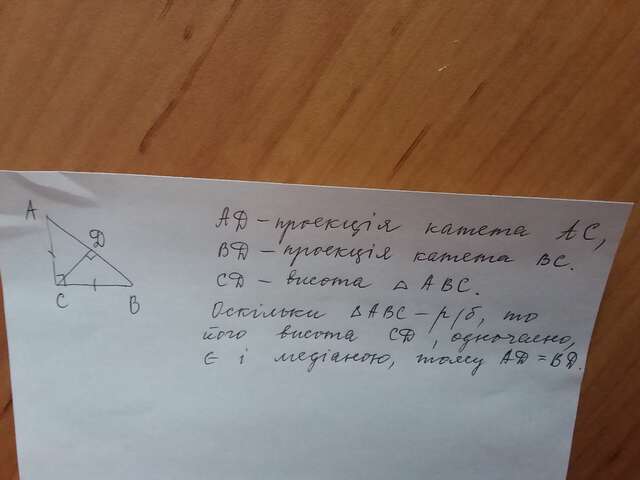 A
D
C
B
AD – проекція катета AC,
BD – проекція катета BC.
CD – висота △ ABC.
Оскільки △ABC – р/б, то
його висота CD, одночасно,
є і медіаною, тому AD = BD.